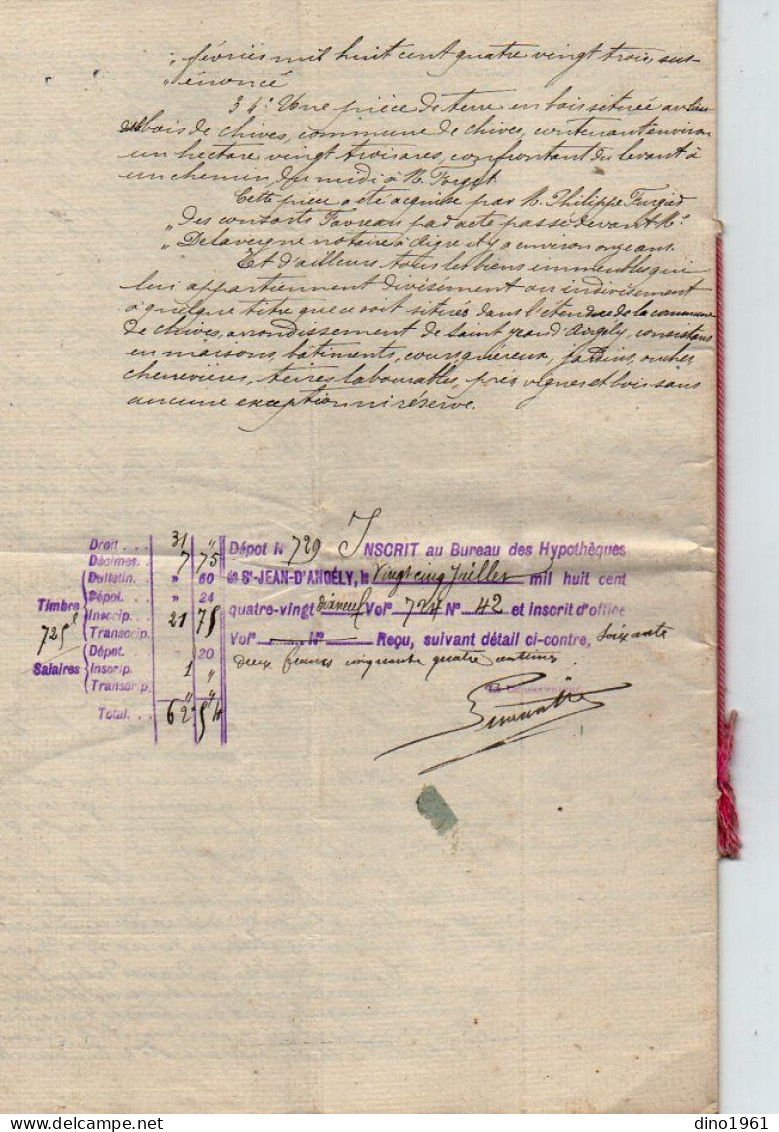 „ février mil huit cent quatre vingt trois, sus-
„ énoncé
34° Une pièce de terre en bois située au lieu
dit bois de chives, commune de chives, contenant environ
un hectare vingt trois ares, confrontant du levant à
un chemin, du midi à M. Forget.
Cette pièce a été acquise par M. Philippe Furgier
„ des consorts Favreau par acte passé devant Me
„ Delavergne notaire à aigre il y a environ onze ans.
Et d'ailleurs tous les biens immeubles qui
lui appartiennent divisement ou indivisement
à quelque titre que ce soit situés dans l'étendue de la commune
de chives, arrondissement de Saint Jean d'Angely, consistans
en maisons, bâtiments, cours, quéreux, jardins, ouches,
chenevières, terres labourables, prés vignes et bois sans
aucune exception ni réserve.
Droit . . . 31 "
Décimes. . 7 75
Timbre
Bulletin. " 60
Dépot. " 24
Inscrip. 21 75
Transcrip.
725
Salaires
Dépot. 20
Inscrip. 1 "
Transcrip. " "
Total. . . 62 54
Dépot N 729 INSCRIT au Bureau des Hypothèques
de St-JEAN-D'ANGÉLY, le Vingt cinq Juillet mil huit cent
quatre-vingt dix neuf Volº 724 Nº 42 et inscrit d'office
Volº Nº Reçu, suivant détail ci-contre, Soixante
deux francs cinquante quatre centimes
dino1961